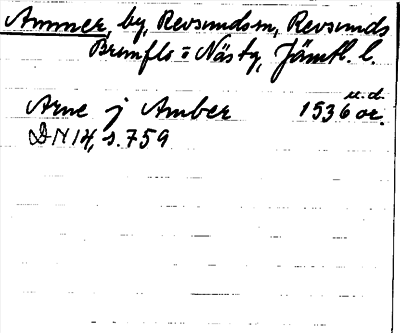 Ammer, by, Revsundsn, Revsunds
Brunflo o Näs tg, Jämtl. l.
u.d.
Arne j Amber 1536 or.
DN 14, s. 759